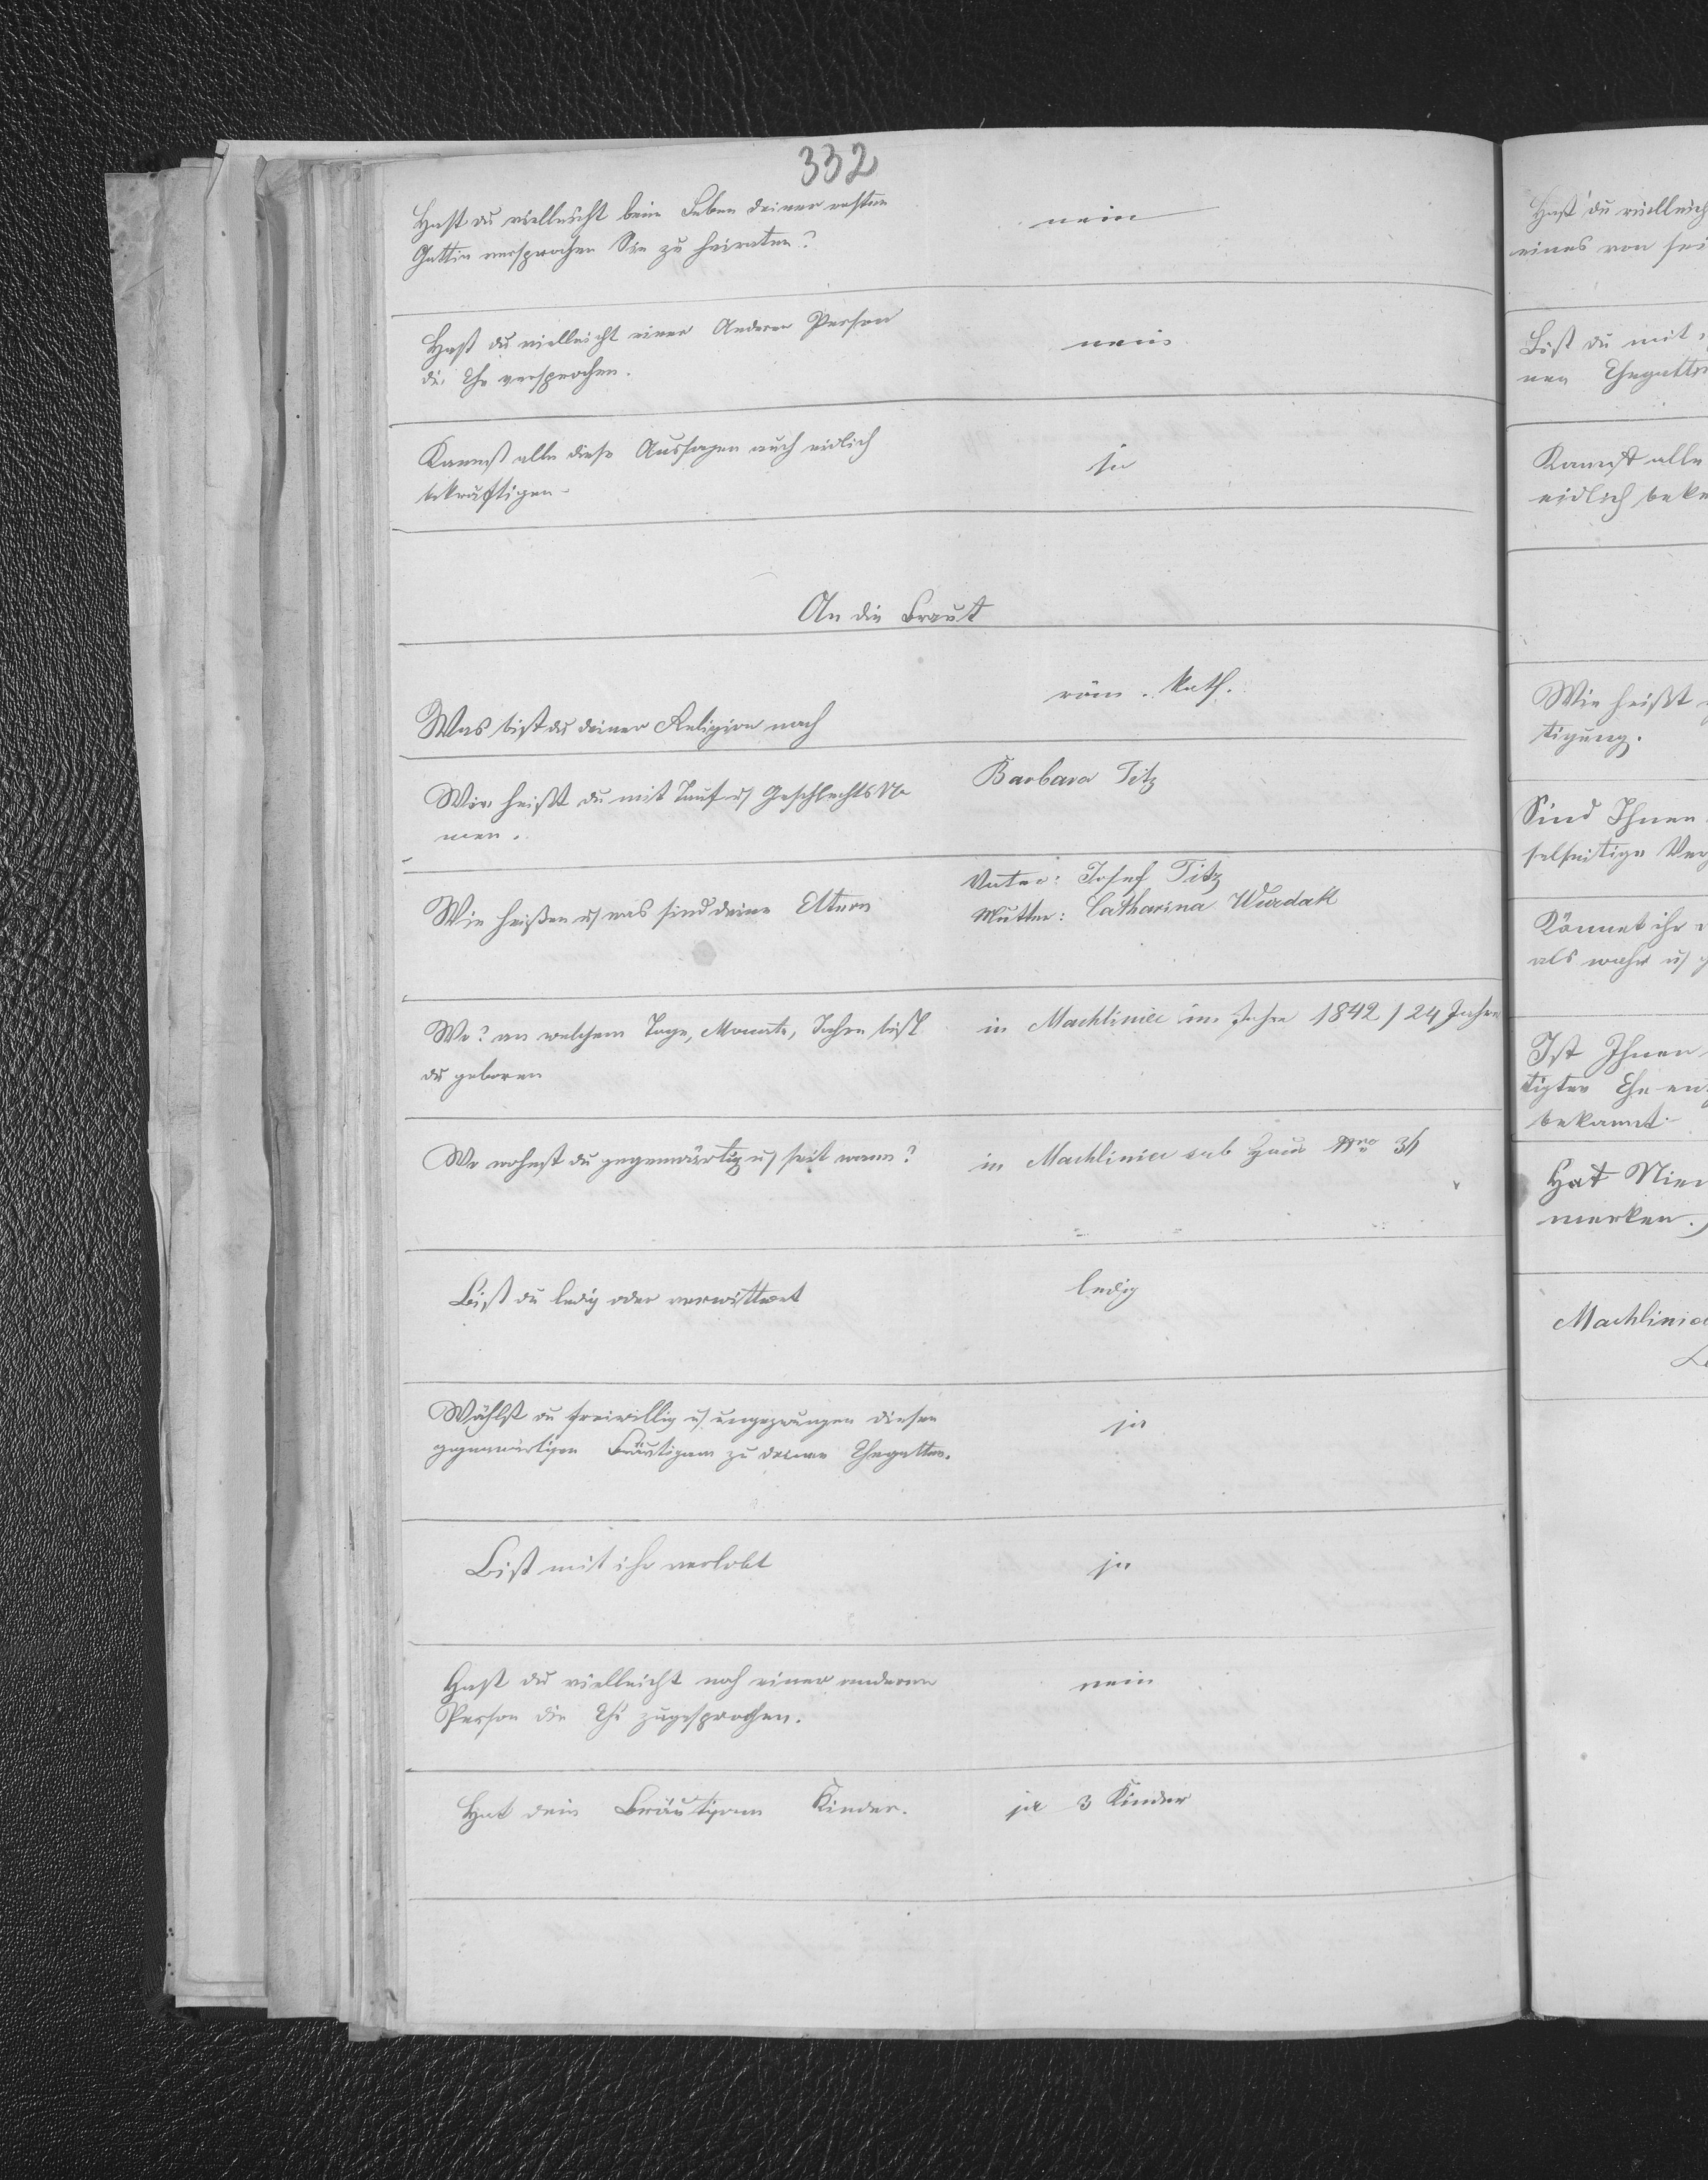 332
Hast du vielleicht beim Leben deiner ersten
Gattin versprochen Sie zu heiraten?
nein
Hast du vielleicht einer Anderen Person
die Ehe versprochen.
nein
Kannst alle diese Aussagen auch eidlich
bekräftigen
ja
An die Braut
Was bist du deiner Religion nach
röm. kath.
Wie heißt du mit Tauf u/ Geschlechts Na
men.
Barbara Titz
Wie heißen u/ was sind deine Eltern
Vater: Josef Titz
Mutter: Catharina Wurdak
Wo? an welchem Tage, Monate, Jahre bist
du geboren
in Machliniec im Jahre 1842 / 24 Jahre
Wo wohnst du gegenwärtig u/ seit wann?
in Machliniec sub Haus Nro 34
Bist du ledig oder verwittwet
ledig
Wählst du freiwillig u/ ungezwungen diesen
gegenwärtigen Bräutigam zu deinen Ehegatten.
ja
Bist mit ihr verlobt
ja
Hast du vielleicht noch einer anderen
Person die Ehe zugesprochen.
nein
Hat dein Bräutigam Kinder.
ja 3 Kinder
Hast du vielleich
eines von sei
Bist du mit
nen Ehegatten
Kannst alle
eidlich bekr
Wie heißt
tigung.
Sind Ihnen
selseitige Ver
Könnet ihr
als wahr u/
Ist Ihnen
tigten Ehe ent
bekannt
Hat Niem
merken.
Machliniec